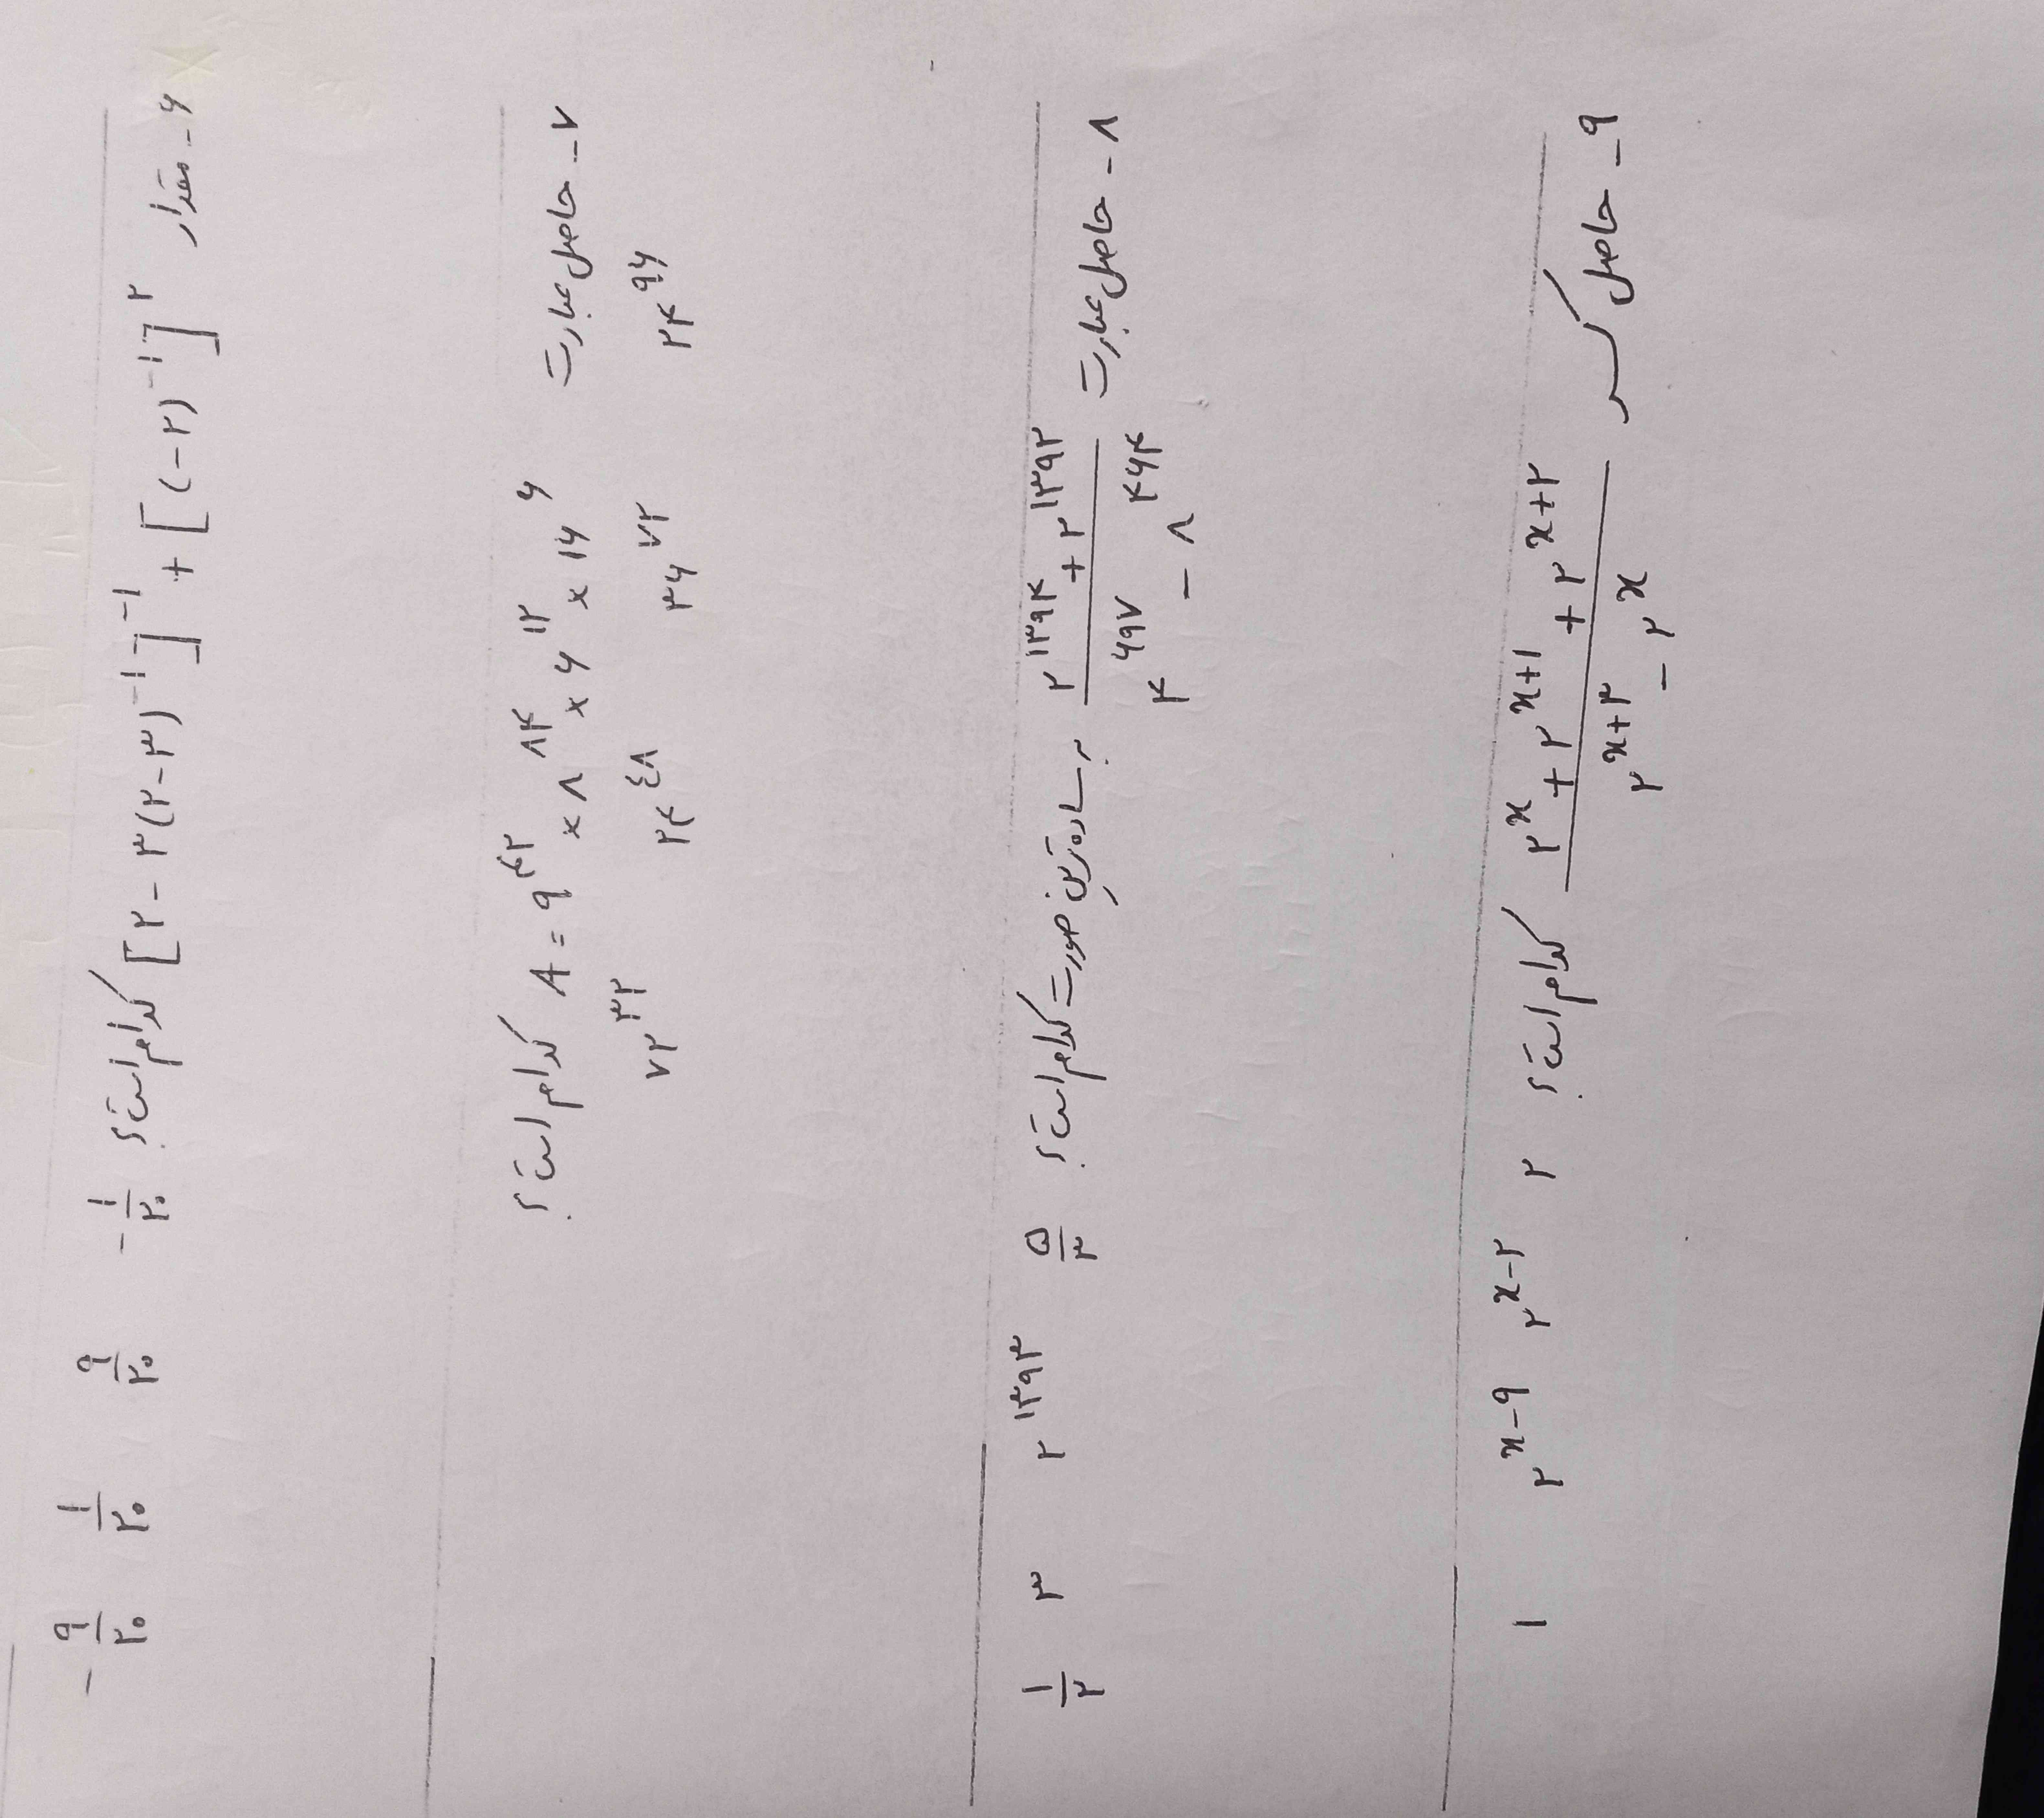 ۶- مقدار [۲-۳(۲-۳)^-۱]^-۱ + [(-۲)^-۱]^۲ کدام است؟ -۱/۲۰ ۹/۲۰ ۱/۲۰ -۹/۲۰
۷- حاصل عبارت A = ۹^۴۲ × ۸^۸۴ × ۶^۱۲ × ۱۶^۶ کدام است؟
۲۴^۹۶ ۳۶^۷۲ ۲۴^۴۸ ۷۲^۳۲
۸- حاصل عبارت (۲^۱۳۹۴ + ۲^۱۳۹۲)/(۴^۶۹۷ - ۸^۴۶۴) به ساده‌ترین صورت کدام است؟ ۵/۳ ۲^۱۳۹۳ ۳ ۱/۲
۹- حاصل کسر (۲^x + ۲^x+۱ + ۲^x+۲)/(۲^x+۳ - ۲^x) کدام است؟ ۲ ۲^x-۲ ۲^x-۹ ۱